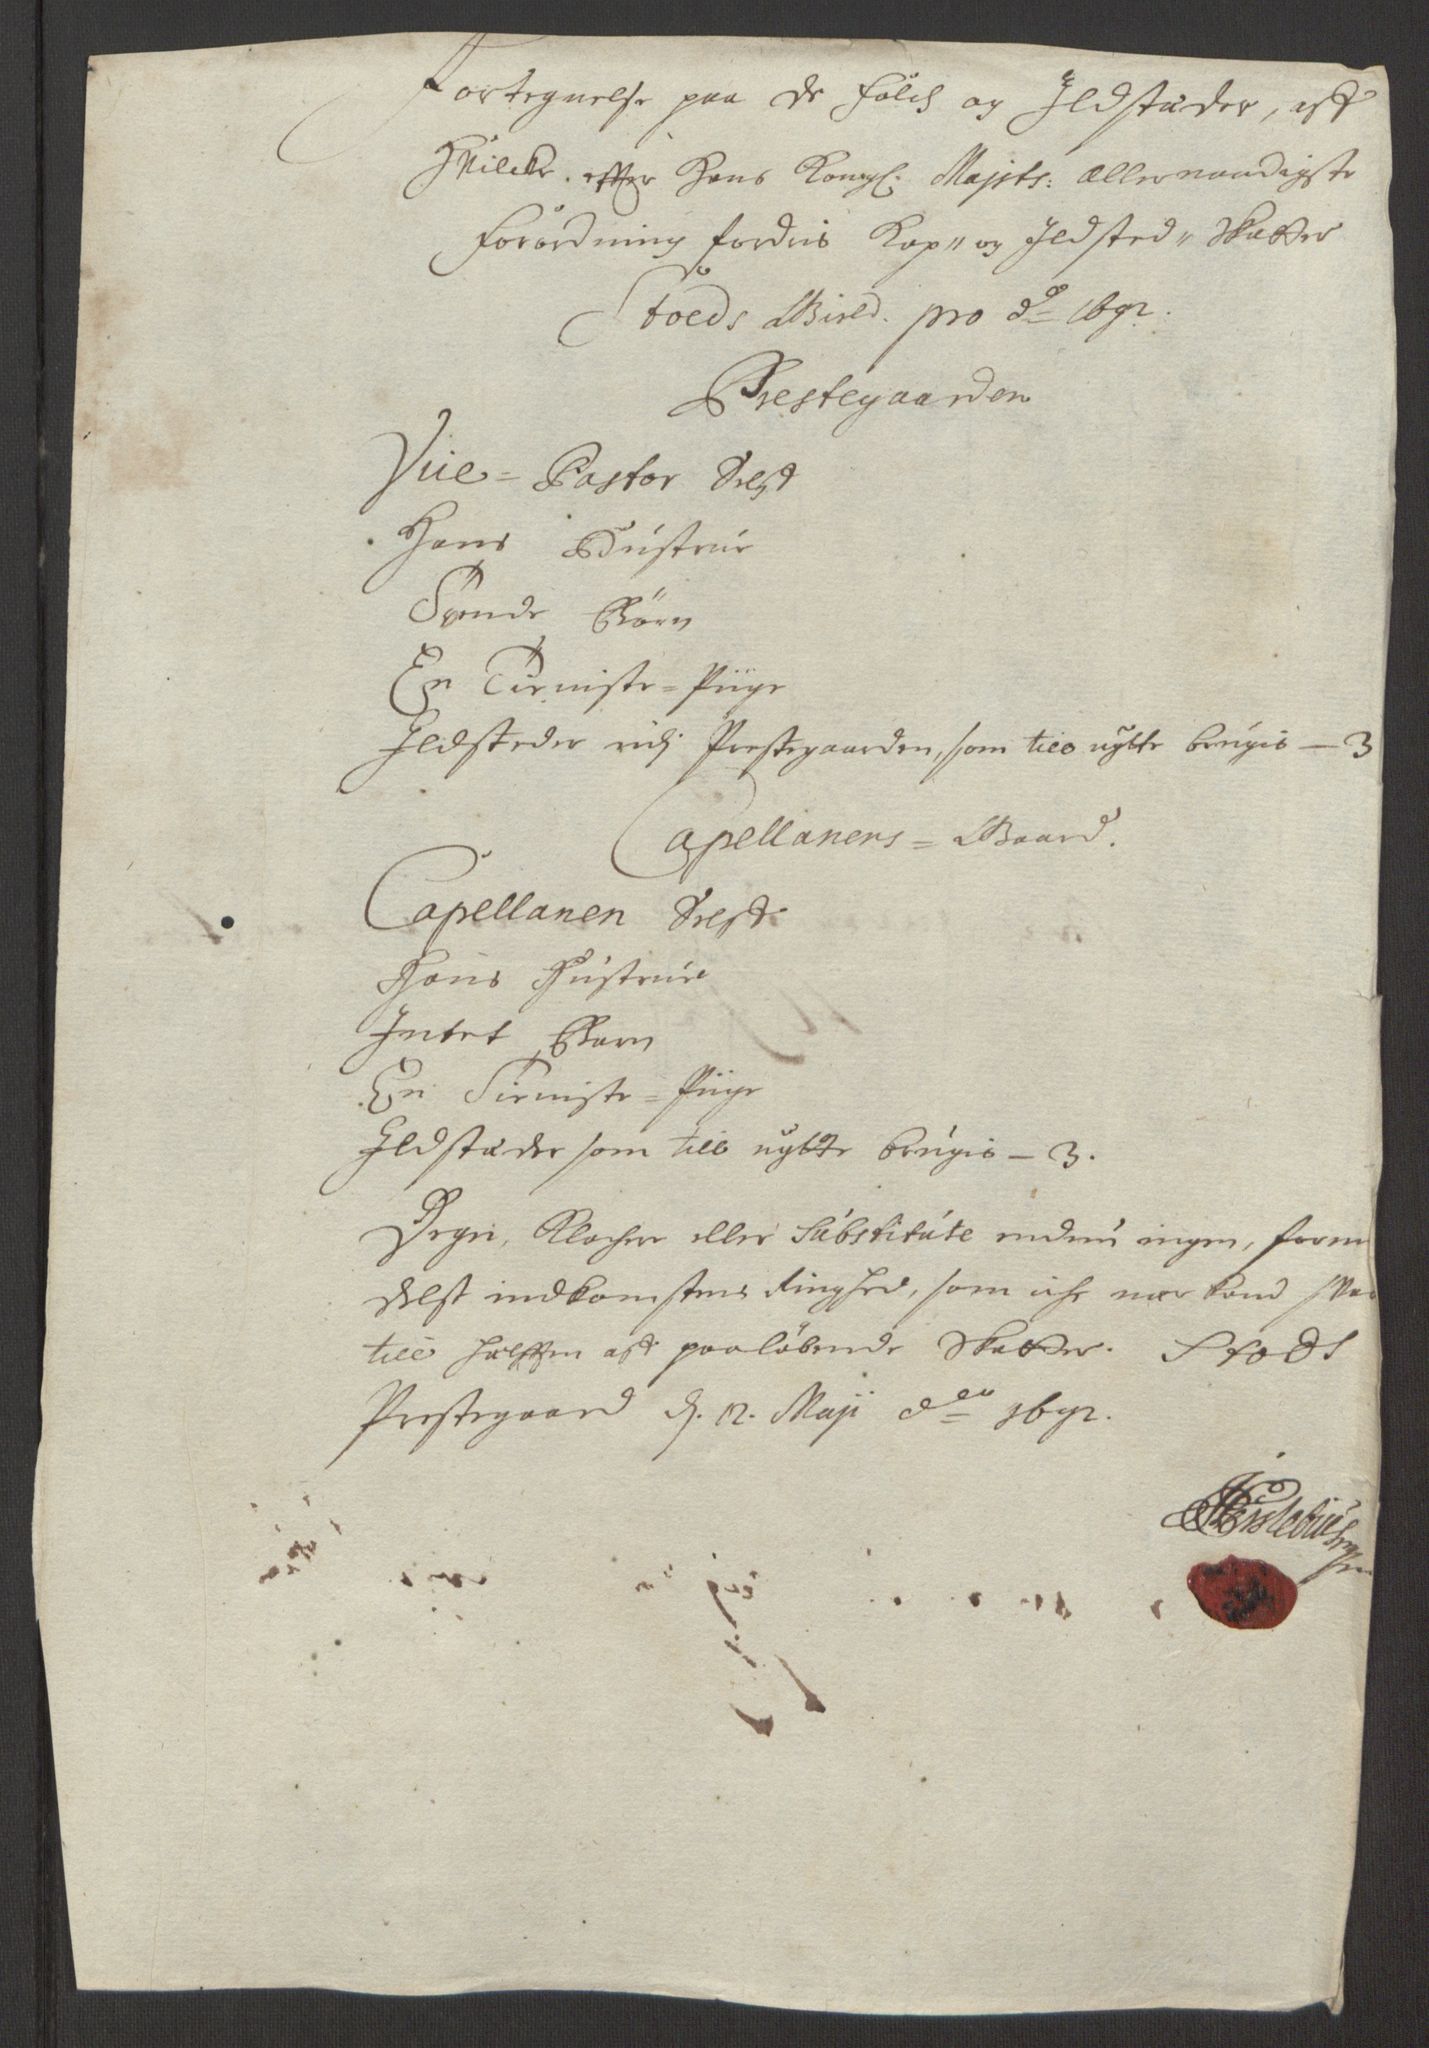 Fortegnelse paa de Folch og Ildstæder, aff
Hvilcke efter Hans Kongl: Majsts: allernaadigste
forordning fordris Kop" og Ildsted" Skatter
Stoeds Gield. pro Ao 1692.
Prestegaarden
Vice-Pastor Self
Hans Hustrue
Tvende Børn
En Tieniste-Piige
Ildsteder udj Prestegaarden, som till nytte brugis - 3
Capellanens-Gaard.
Capellanen Self
Hans Hustrue
Intet Barn
En Tieniste-Piige
Ildstæder som till nytte brugis - 3.
Degn, Klocher eller Substitute endnu ingen, form
delst indkomstens Ringhed, som iche nær kand
till helften aff paaløbende Skatter. Stods
Prestegaard d. 12. Maji Ao 1692.